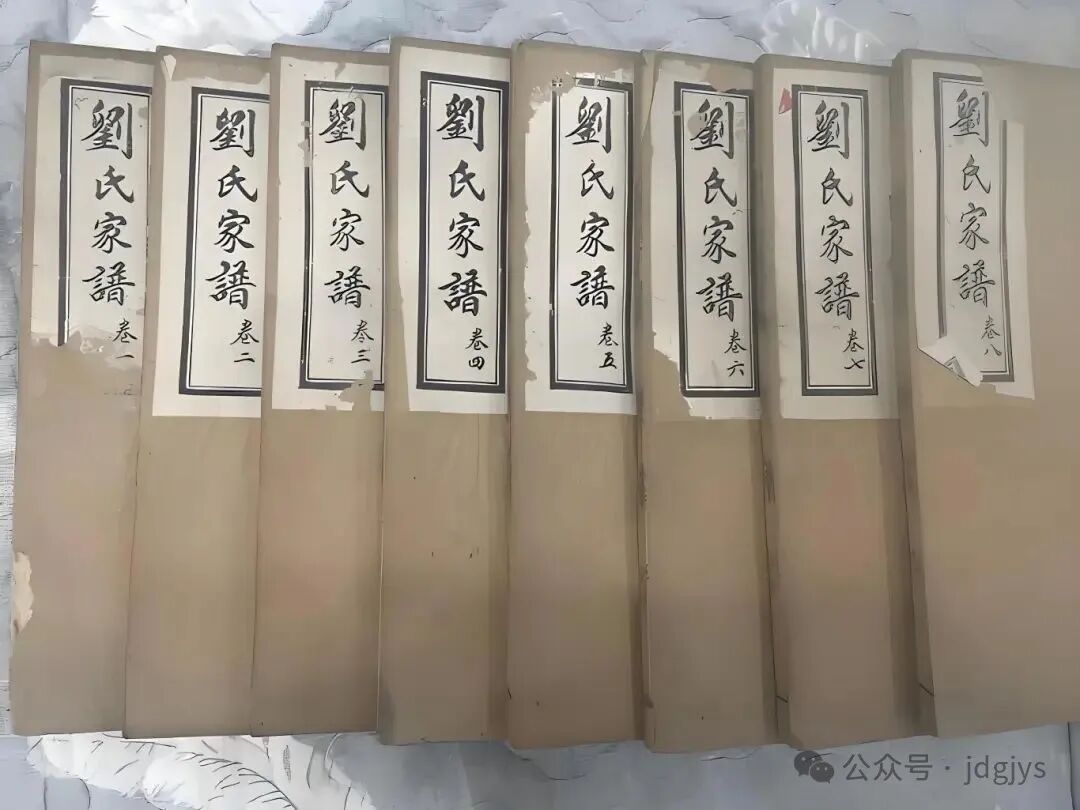 劉氏家譜 卷一
劉氏家譜 卷二
劉氏家譜 卷三
劉氏家譜 卷四
劉氏家譜 卷五
劉氏家譜 卷六
劉氏家譜 卷七
劉氏家譜 卷八
公众号·jdgjys